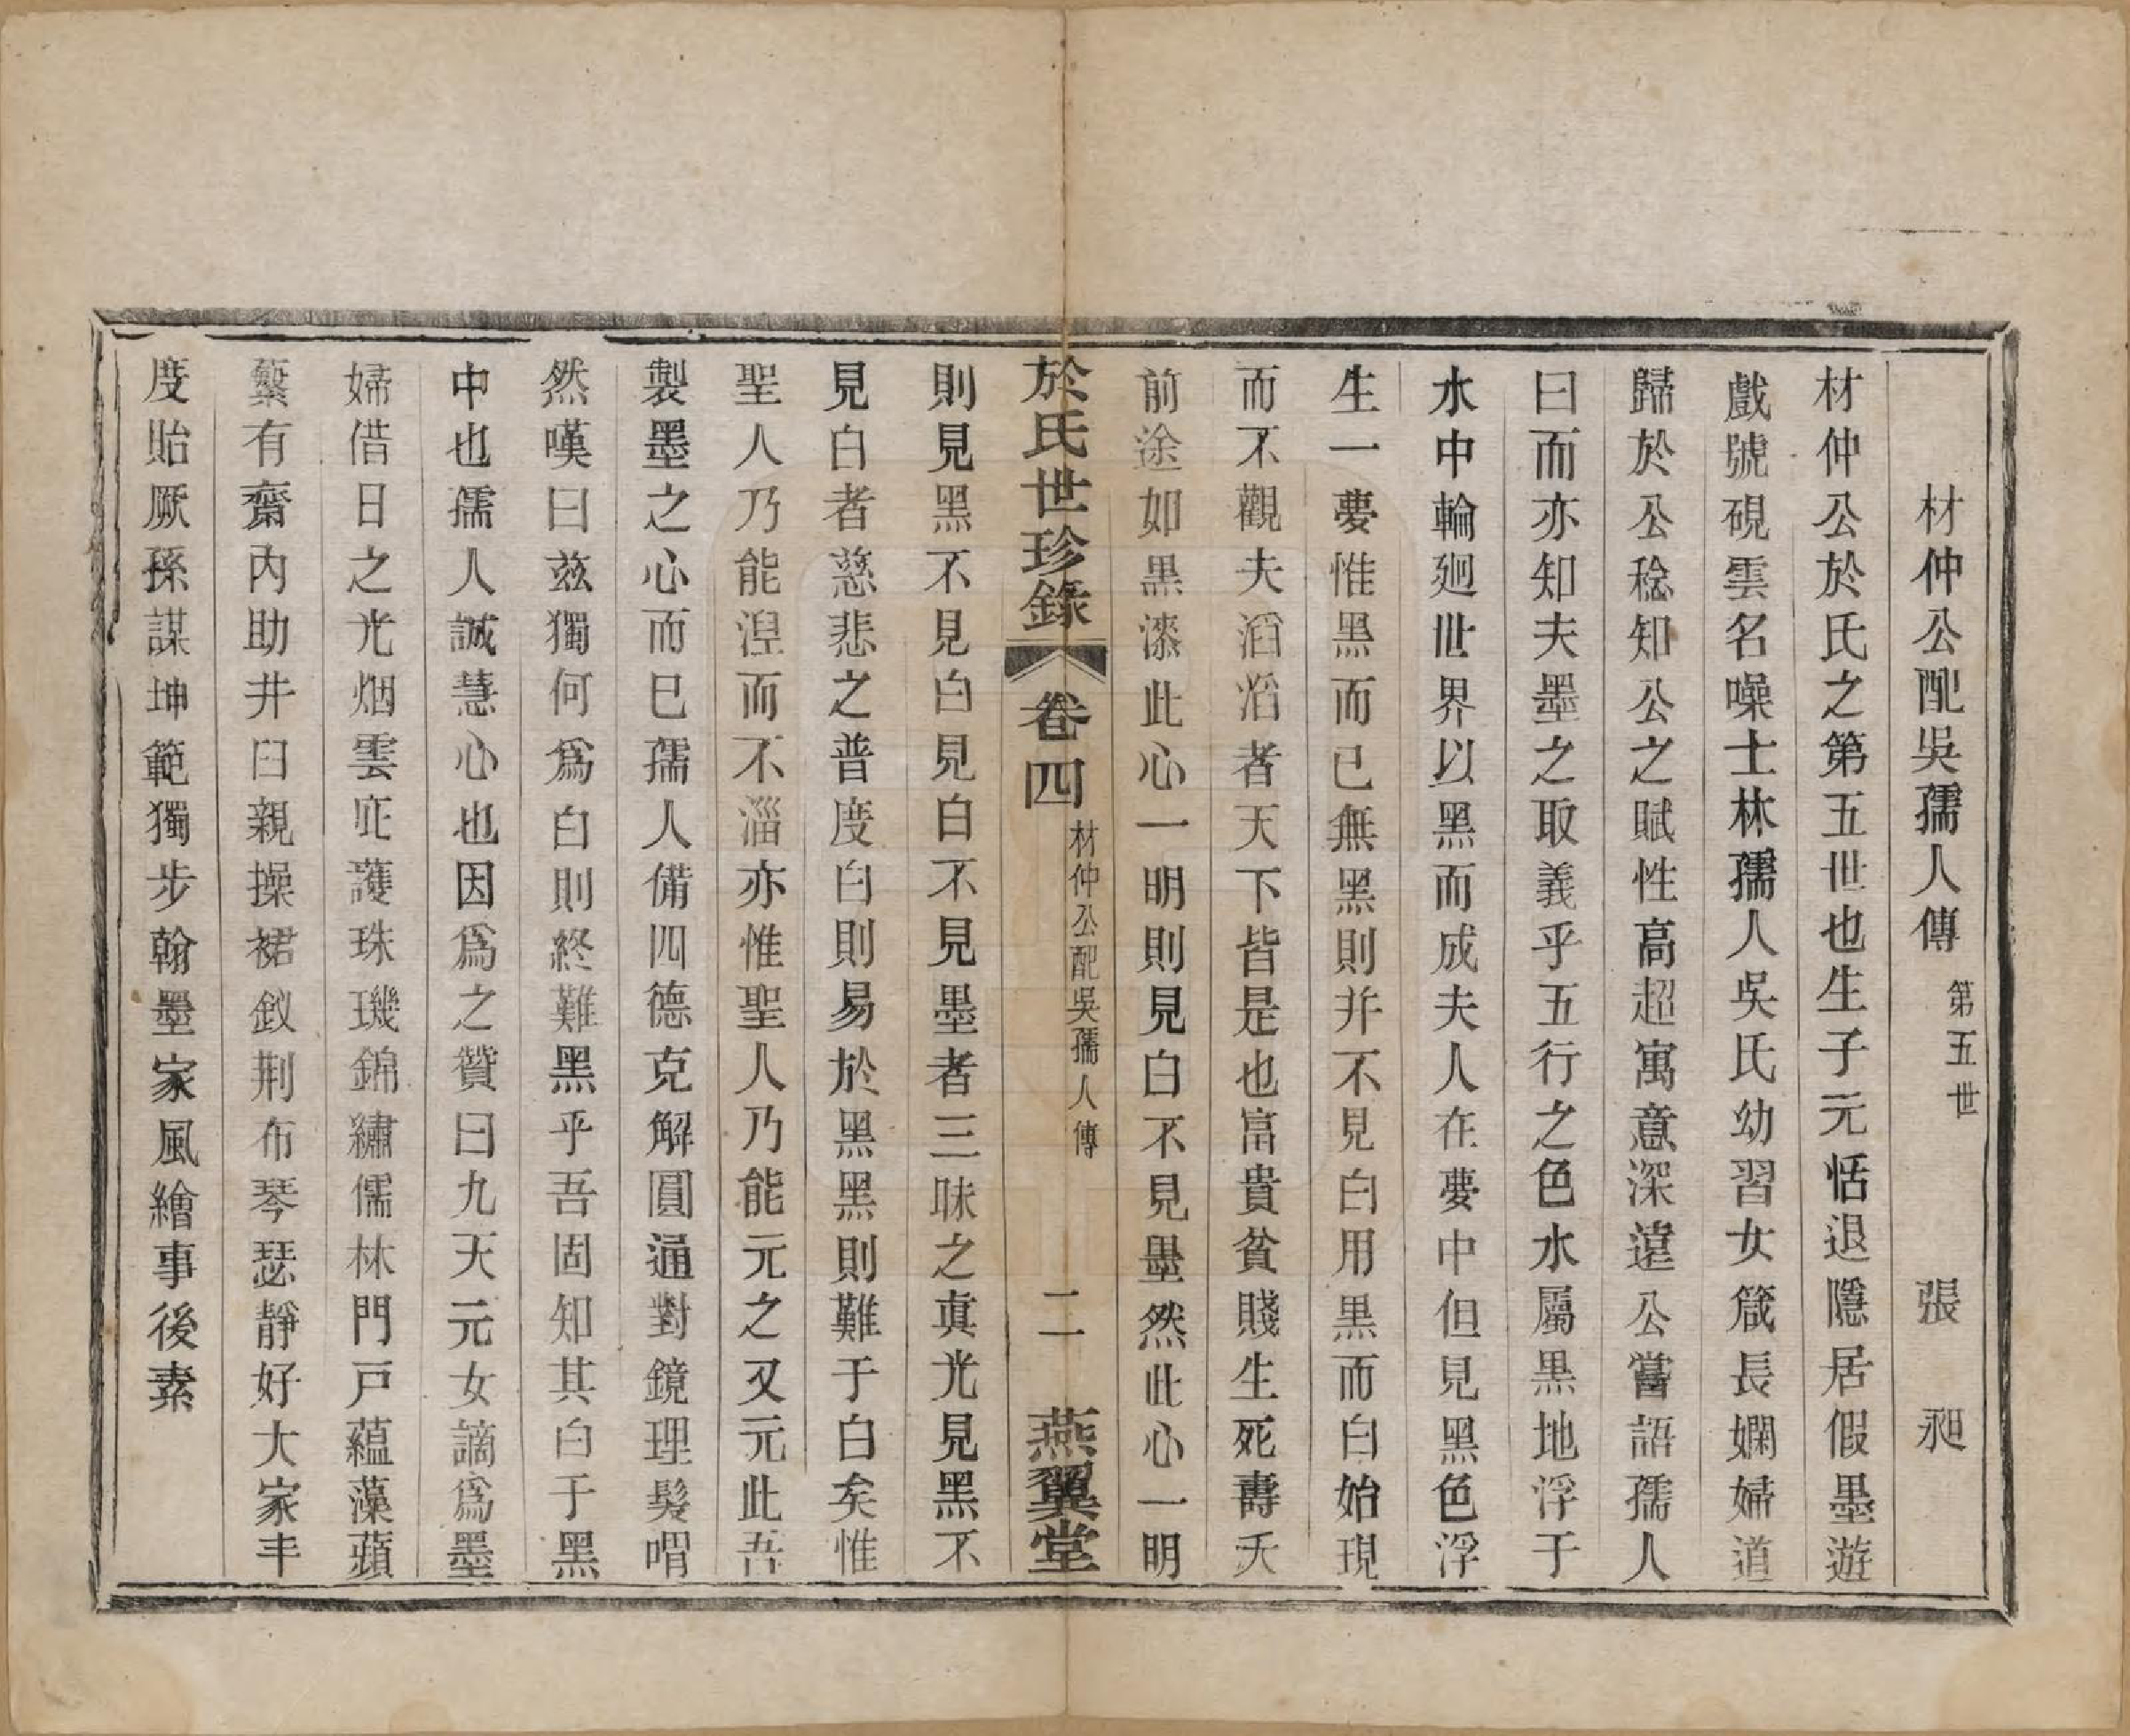 材仲公配吳孺人傳 第五世 張昶
材仲公於氏之第五世也生子元恬退隱居假墨遊
戲號硯雲名噪士林孺人吳氏幼習女箴長嫻婦道
歸於公稔知公之賦性高超寓意深遠公嘗語孺人
曰而亦知夫墨之取義乎五行之色水屬黑地浮于
水中輪廻世界以黑而成夫人在夢中但見黑色浮
生一夢惟黑而已無黑則并不見白用黑而白始現
而不觀夫滔滔者天下皆是也富貴貧賤生死壽夭
前途如黑漆此心一明則見白不見墨然此心一明
於氏世珍錄 卷四 材仲公配吳孺人傳 二 燕翼堂
則見黑不見白見白不見墨者三昧之真光見黑不
見白者慈悲之普度白則易於黑黑則難于白矣惟
聖人乃能湼而不淄亦惟聖人乃能元之又元此吾
製墨之心而已孺人備四德克解圓通對鏡理髮喟
然嘆曰兹獨何爲白則終難黑乎吾固知其白于黑
中也孺人誠慧心也因爲之贊曰九天元女謫爲墨
婦借日之光烟雲庇護珠璣錦繡儒林門戸蘊藻蘋
蘩有齋內助井臼親操裙釵荆布琴瑟靜好大家丰
度貽厥孫謀坤範獨步翰墨家風繪事後素